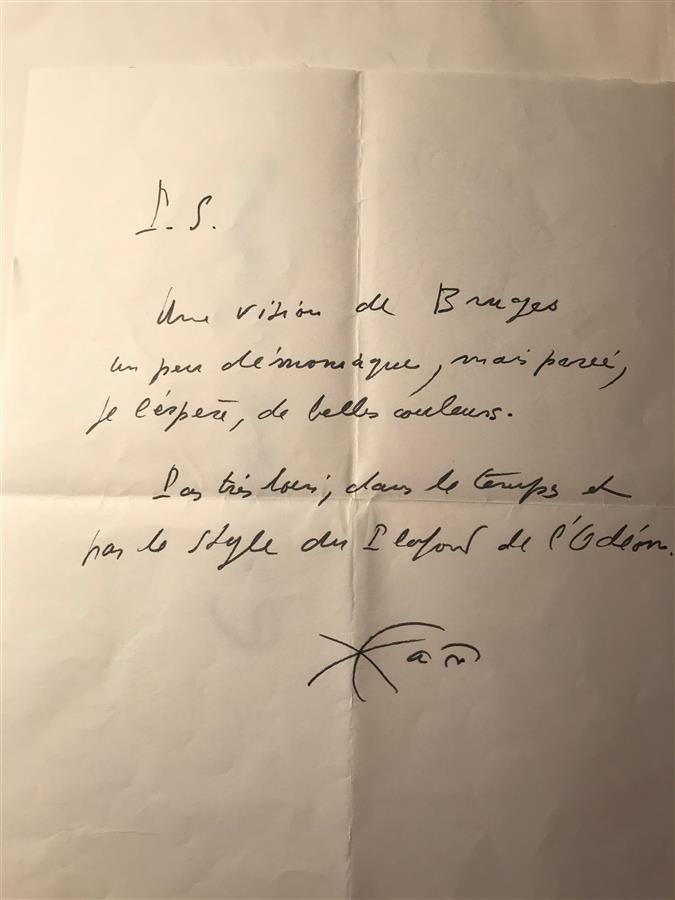 P.S.
Une vision de Bruges
un peu démoniaque, mais parée,
je l'espère, de belles couleurs.
Pas très loin, dans le temps et
par le style du Plafond de l'Odéon.